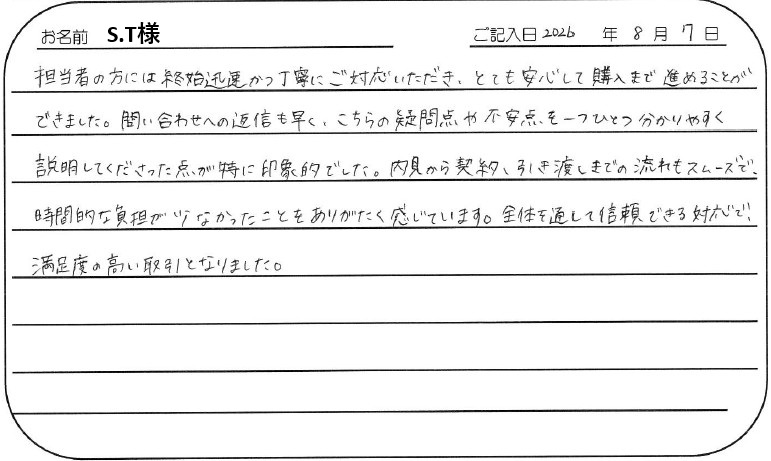 お名前 S.T様 ご記入日 2026 年 8 月 7 日
担当者の方には終始迅速かつ丁寧にご対応いただき、とても安心して購入まで進めることが
できました。問い合わせへの返信も早く、こちらの疑問点や不安点を一つひとつ分かりやすく
説明してくださった点が特に印象的でした。内見から契約、引き渡しまでの流れもスムーズで、
時間的な負担が少なかったことをありがたく感じています。全体を通して信頼できる対応で、
満足度の高い取引となりました。